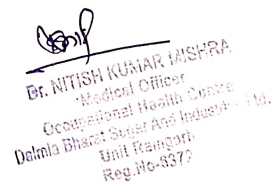 Dr. NITISH KUMAR MISHRA
Medical Officer
Occupational Health Centre
Dalmia Bharat Sugar And Industries Ltd.
Unit Ramgarh
Reg.No-6379